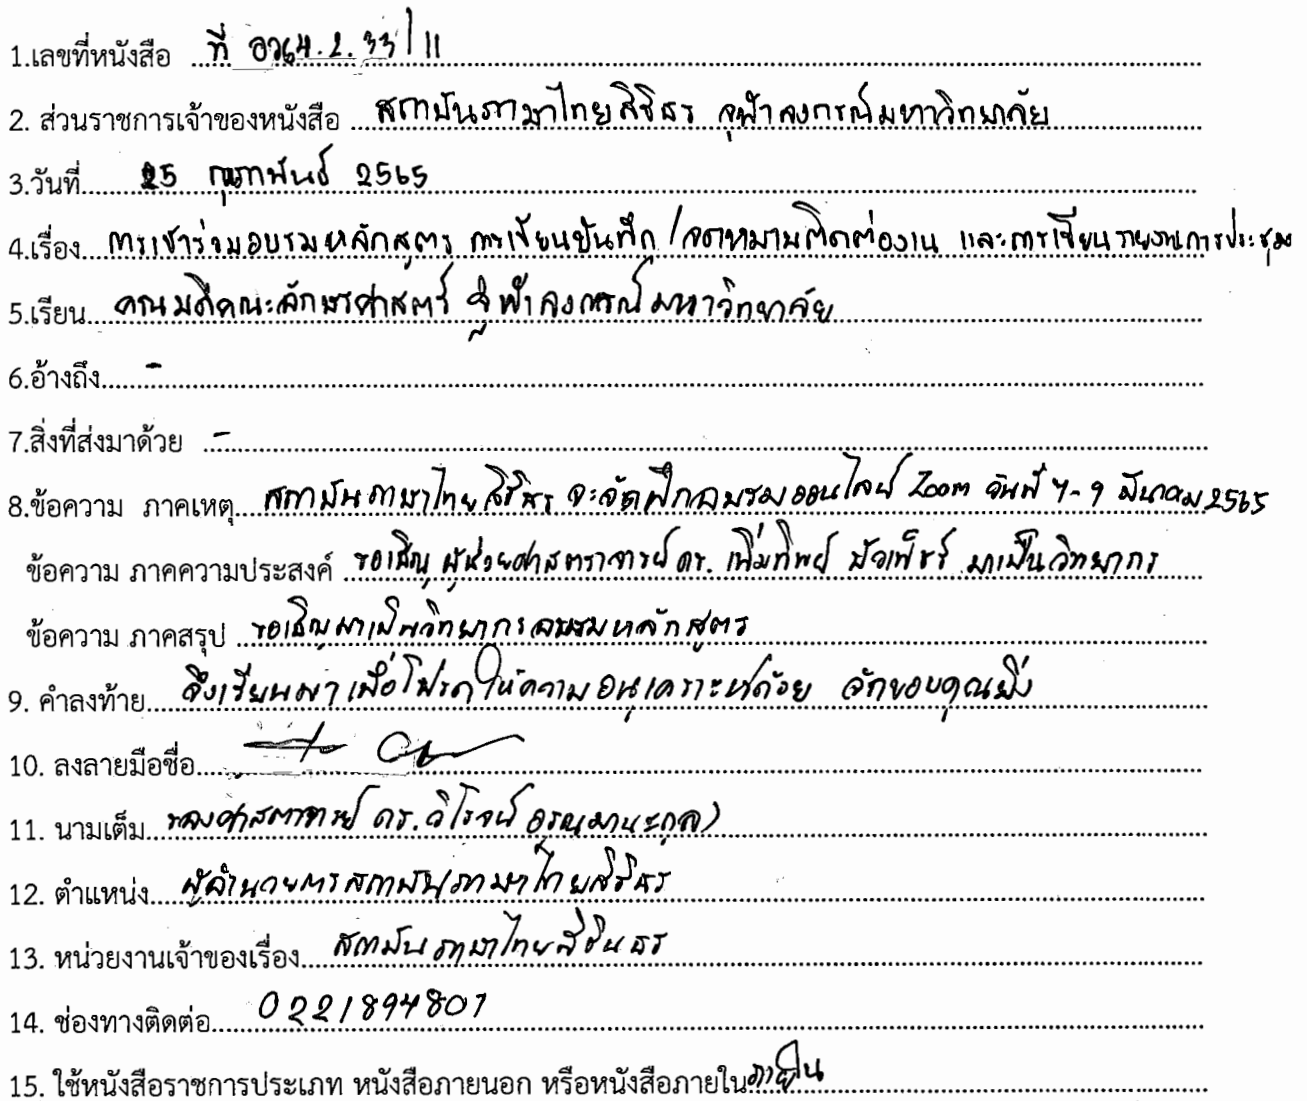 1.เลขที่หนังสือ ที่ อว64.2.33/11
2. ส่วนราชการเจ้าของหนังสือ สถาบันภาษาไทยสิรินธร จุฬาลงกรณ์มหาวิทยาลัย
3.วันที่ 25 กุมภาพันธ์ 2565
4.เรื่อง การเข้าร่วมอบรมหลักสูตร การเขียนบันทึก/จดหมายติดต่องาน และการเขียนรายงานการประชุม
5.เรียน คณบดีคณะอักษรศาสตร์ จุฬาลงกรณ์มหาวิทยาลัย
6.อ้างถึง -
7.สิ่งที่ส่งมาด้วย -
8.ข้อความ ภาคเหตุ สถาบันภาษาไทยสิรินธร จะจัดฝึกอบรมออนไลน์ Zoom วันที่ 7-9 มีนาคม 2565
ข้อความ ภาคความประสงค์ ขอเชิญ ผู้ช่วยศาสตราจารย์ ดร. เพิ่มทิพย์ บัวเพ็ชร์ มาเป็นวิทยากร
ข้อความ ภาคสรุป ขอเชิญมาเป็นวิทยากรอบรมหลักสูตร
9. คำลงท้าย จึงเรียนมาเพื่อโปรดให้ความอนุเคราะห์ด้วย จักขอบคุณยิ่ง
10. ลงลายมือชื่อ
11. นามเต็ม รองศาสตาจารย์ ดร.วิโรจน์ อรุณมานะกุล)
12. ตำแหน่ง ผู้อำนวยการสถาบันภาษาไทยสิรินธร
13. หน่วยงานเจ้าของเรื่อง สถาบันภาษาไทยสิรินธร
14. ช่องทางติดต่อ 0221894801
15. ใช้หนังสือราชการประเภท หนังสือภายนอก หรือหนังสือภายใน ภายใน